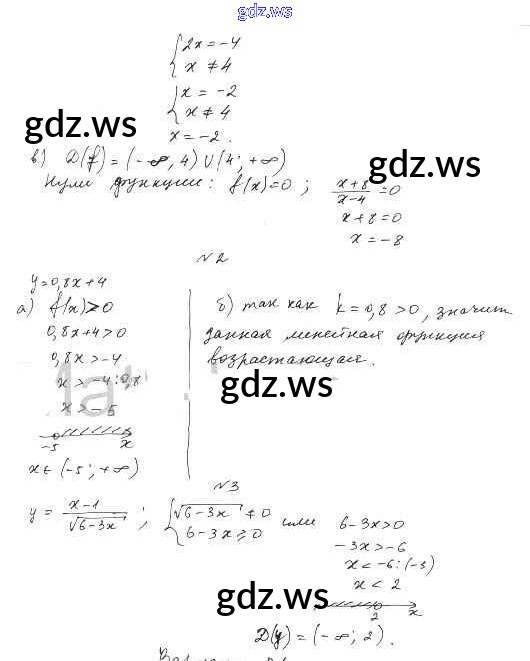 gdz.ws
{2x = -4
x ≠ 4
gdz.ws
{x = -2
x ≠ 4
x = -2.
в) D(f) = (-∞, 4) ∪ (4; +∞)
gdz.ws
Нули функции: f(x)=0; (x+8)/(x-4) = 0
x+8=0
x = -8
№2
y = 0,8x+4
а) f(x)>0
0,8x+4>0
0,8x > -4
x > -4:0,8
x > -5
-5 x
x ∈ (-5; +∞)
б) так как k = 0,8 > 0, значит
данная линейная функция
возрастающая.
gdz.ws
№3
y = (x-1)/√(6-3x) ; {√(6-3x) ≠ 0
6-3x ⩾ 0 или 6-3x>0
-3x > -6
x < -6:(-3)
x < 2
gdz.ws
2 x
D(y) = (-∞; 2).